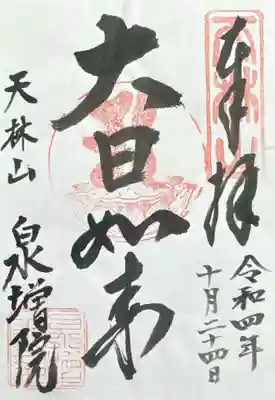 奉拝
令和四年
十月二十四日
大日如来
天林山
泉増院